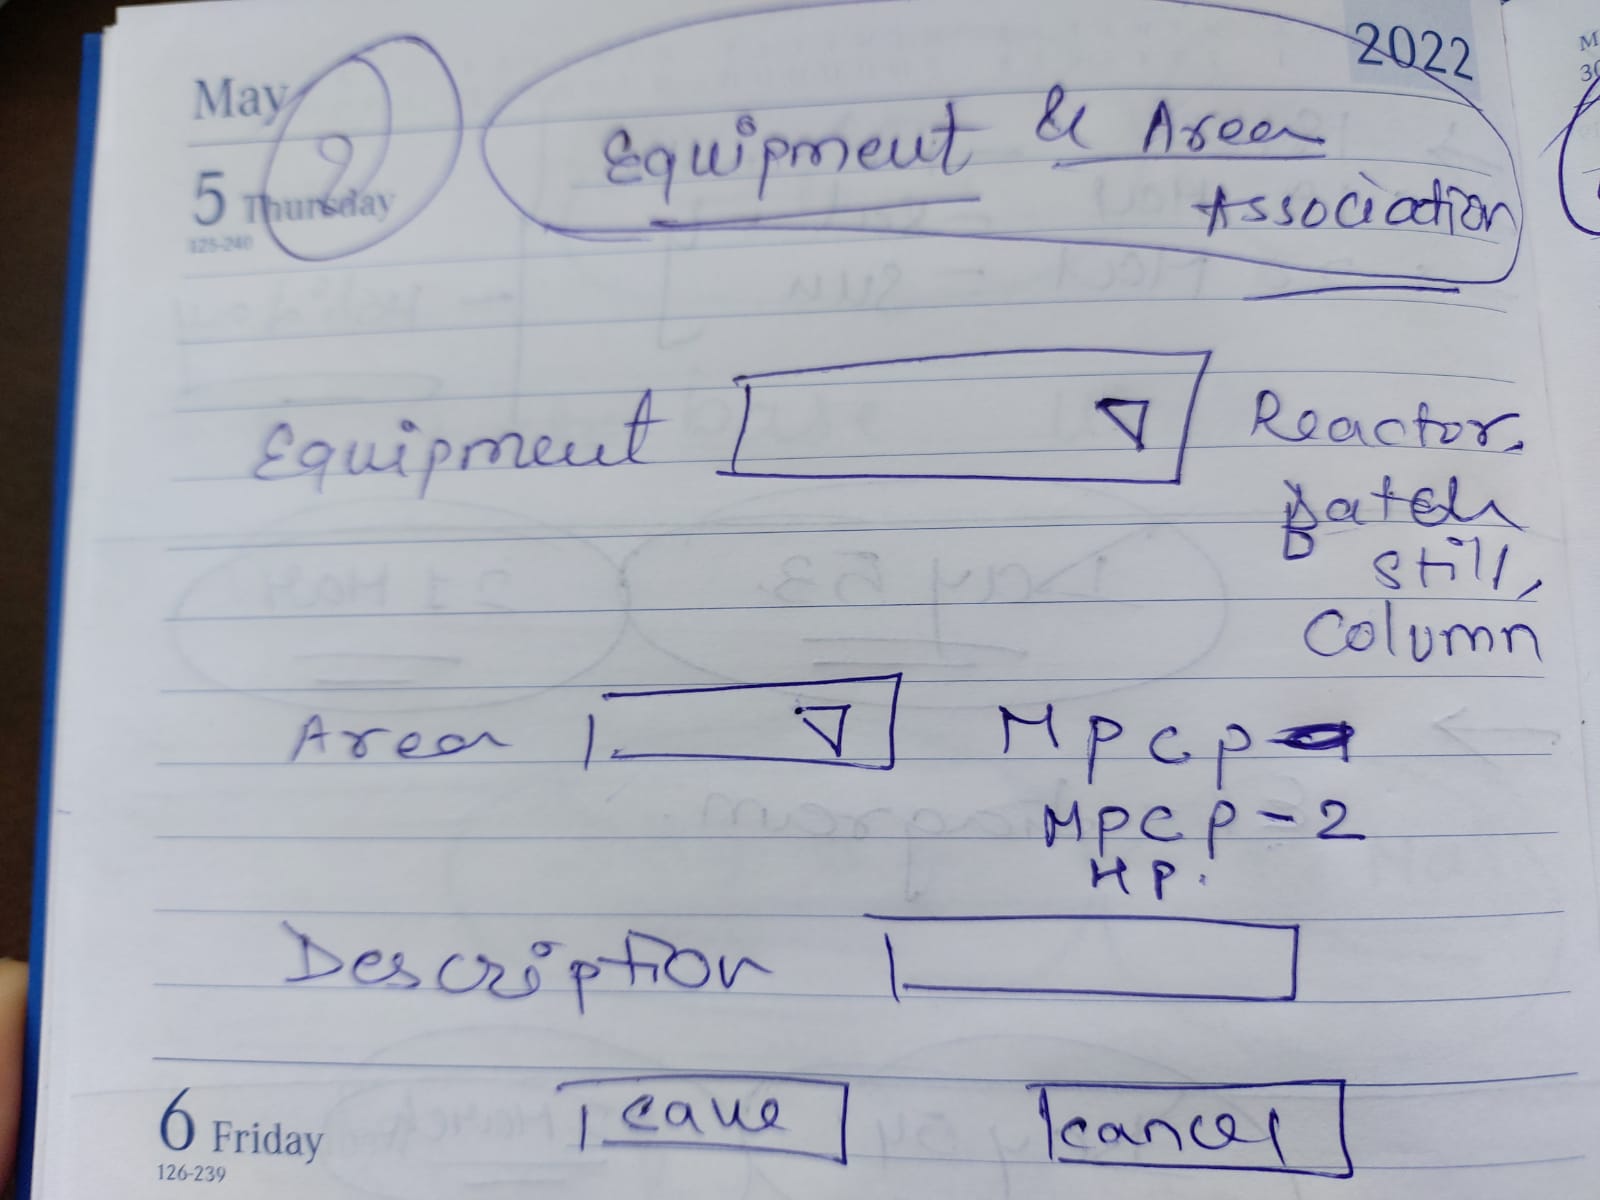 2022
May
5 Thursday
125-240
9
Equipment & Area
Association
Equipment
Reactor,
Batch
still,
Column
Area
MPCP
MPCP-2
HP.
Description
6 Friday
126-239
save
cancel